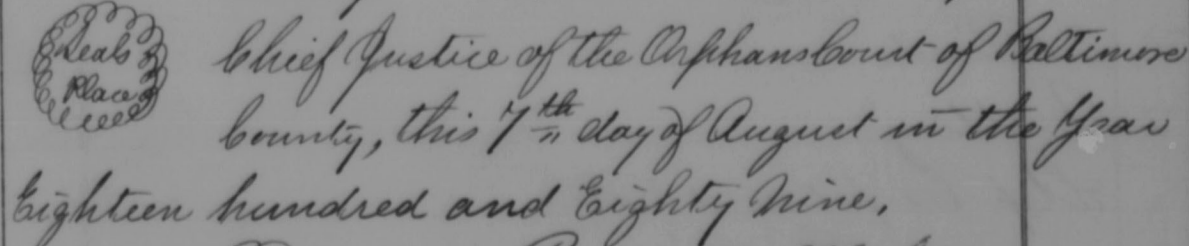 Seals
Place
Chief Justice of the Orphans Court of Baltimore
County, this 7th day of August in the Year
Eighteen hundred and Eighty Nine.